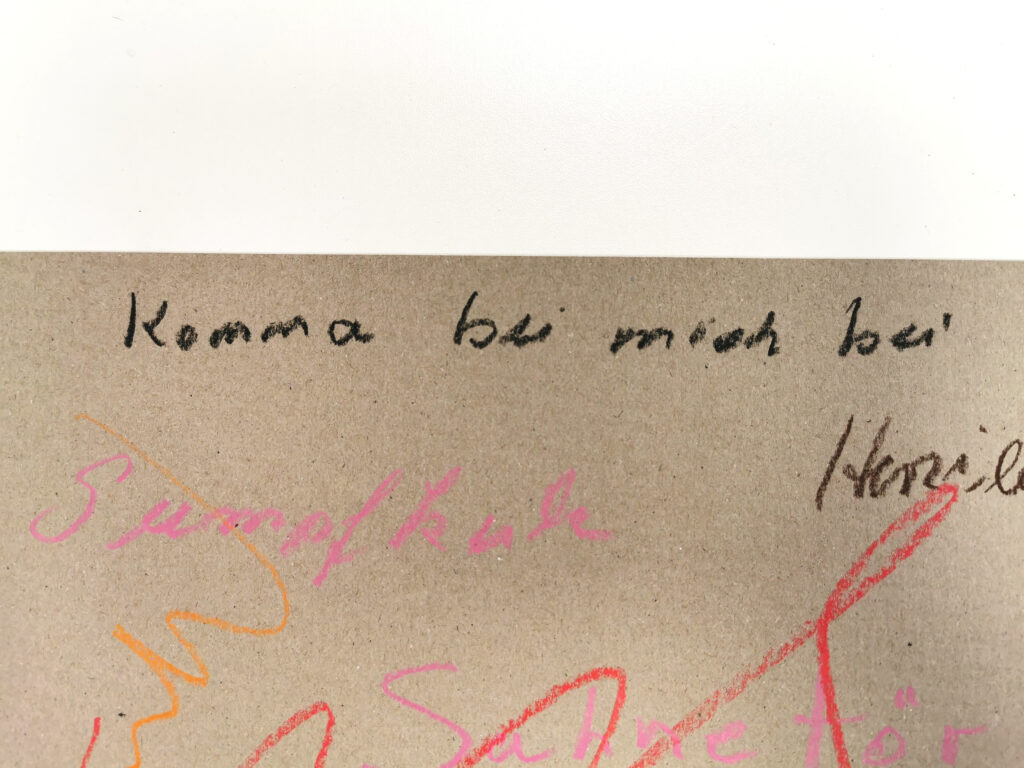 Komma bei mich bei
Sumpfkuh
Sahnetör